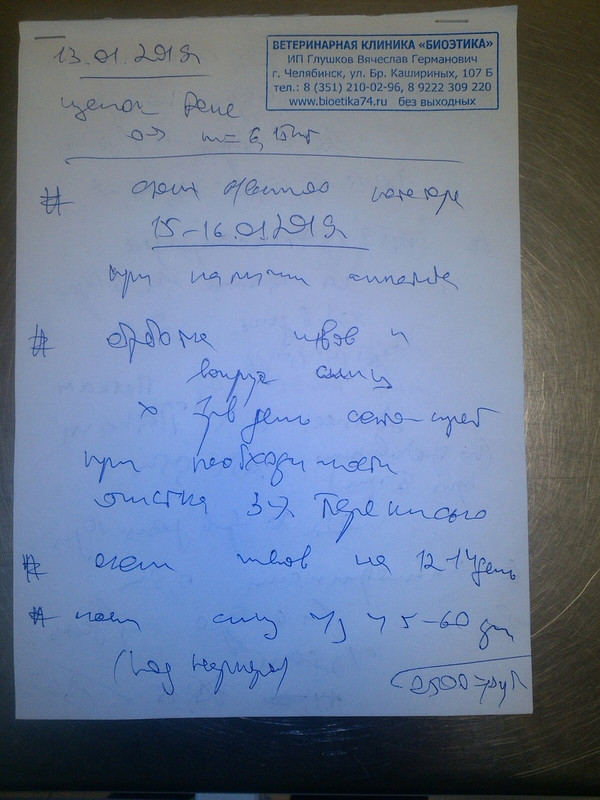 13.01.2019г.
ВЕТЕРИНАРНАЯ КЛИНИКА «БИОЭТИКА»
ИП Глушков Вячеслав Германович
г. Челябинск, ул. Бр. Кашириных, 107 Б
тел.: 8 (351) 210-02-96, 8 9222 309 220
www.bioetika74.ru без выходных
щенок Рене
m=6,15кг
#
15-16.01.2019г.
при наличии аппетита
# обработка швов и
вокруг спиц
x 3р в день
при необходимости
очистка 3% перекисью
# швов на 12-14 день
# спиц ч/з 45-60 дн
(под наркозом)
2500 руб